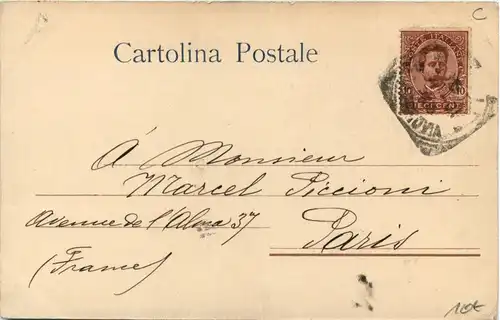 C
Cartolina Postale
POSTE ITALIANE
DIECI CENT
À Monsieur
Marcel Piccioni
Avenue de l'Alma 37
Paris
(France)
10€